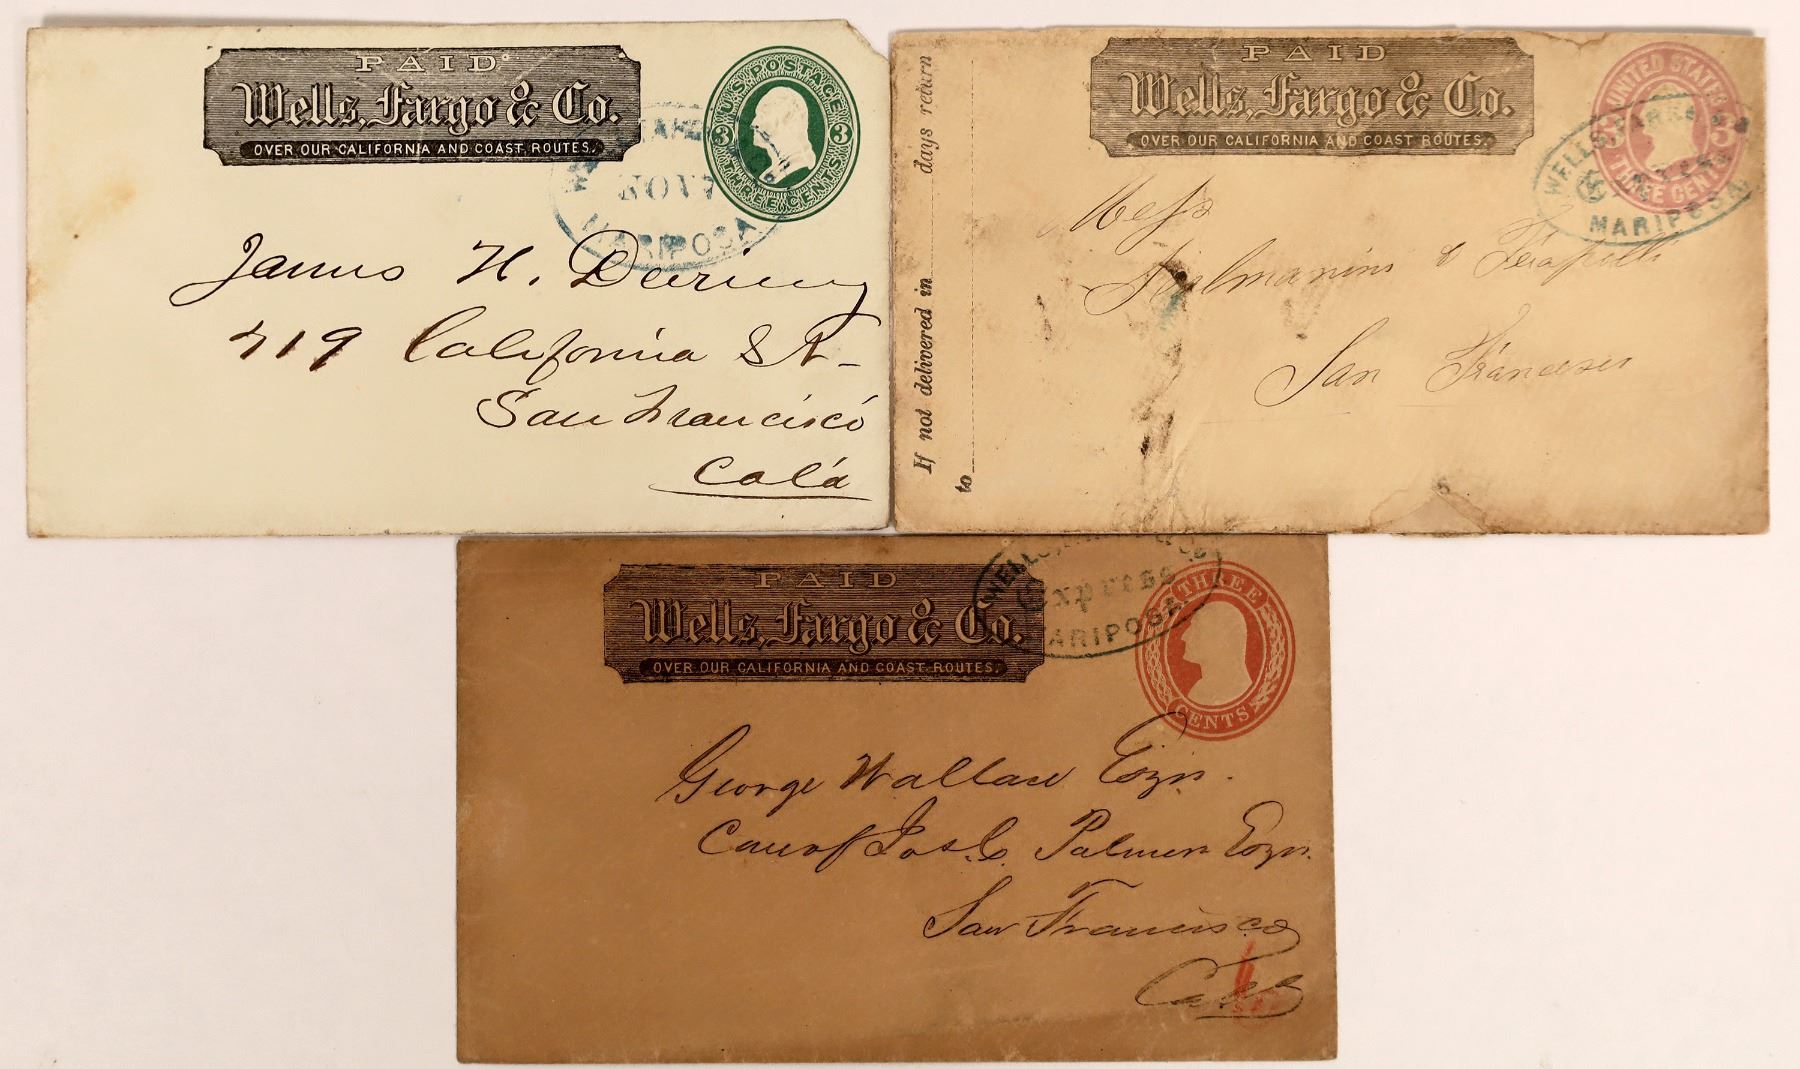 PAID
Wells, Fargo & Co.
OVER OUR CALIFORNIA AND COAST ROUTES.
U.S. POSTAGE
3 3
THREE CENTS
NOV 7
MARIPOSA
James H. Deering
419 California St-
San Francisco
Cala
If not delivered in days return
to
PAID
Wells, Fargo & Co.
OVER OUR CALIFORNIA AND COAST ROUTES.
UNITED STATES
3 3
THREE CENTS
WELLS, FARGO & Co
MARIPOSA.
Mess
San Francisco
PAID
Wells, Fargo & Co.
OVER OUR CALIFORNIA AND COAST ROUTES.
THREE
CENTS
WELLS, FARGO & Co
Express
MARIPOSA.
George Wallace Esqr.
Care of Jos. C. Palmer Esqr.
San Francisco
Cala